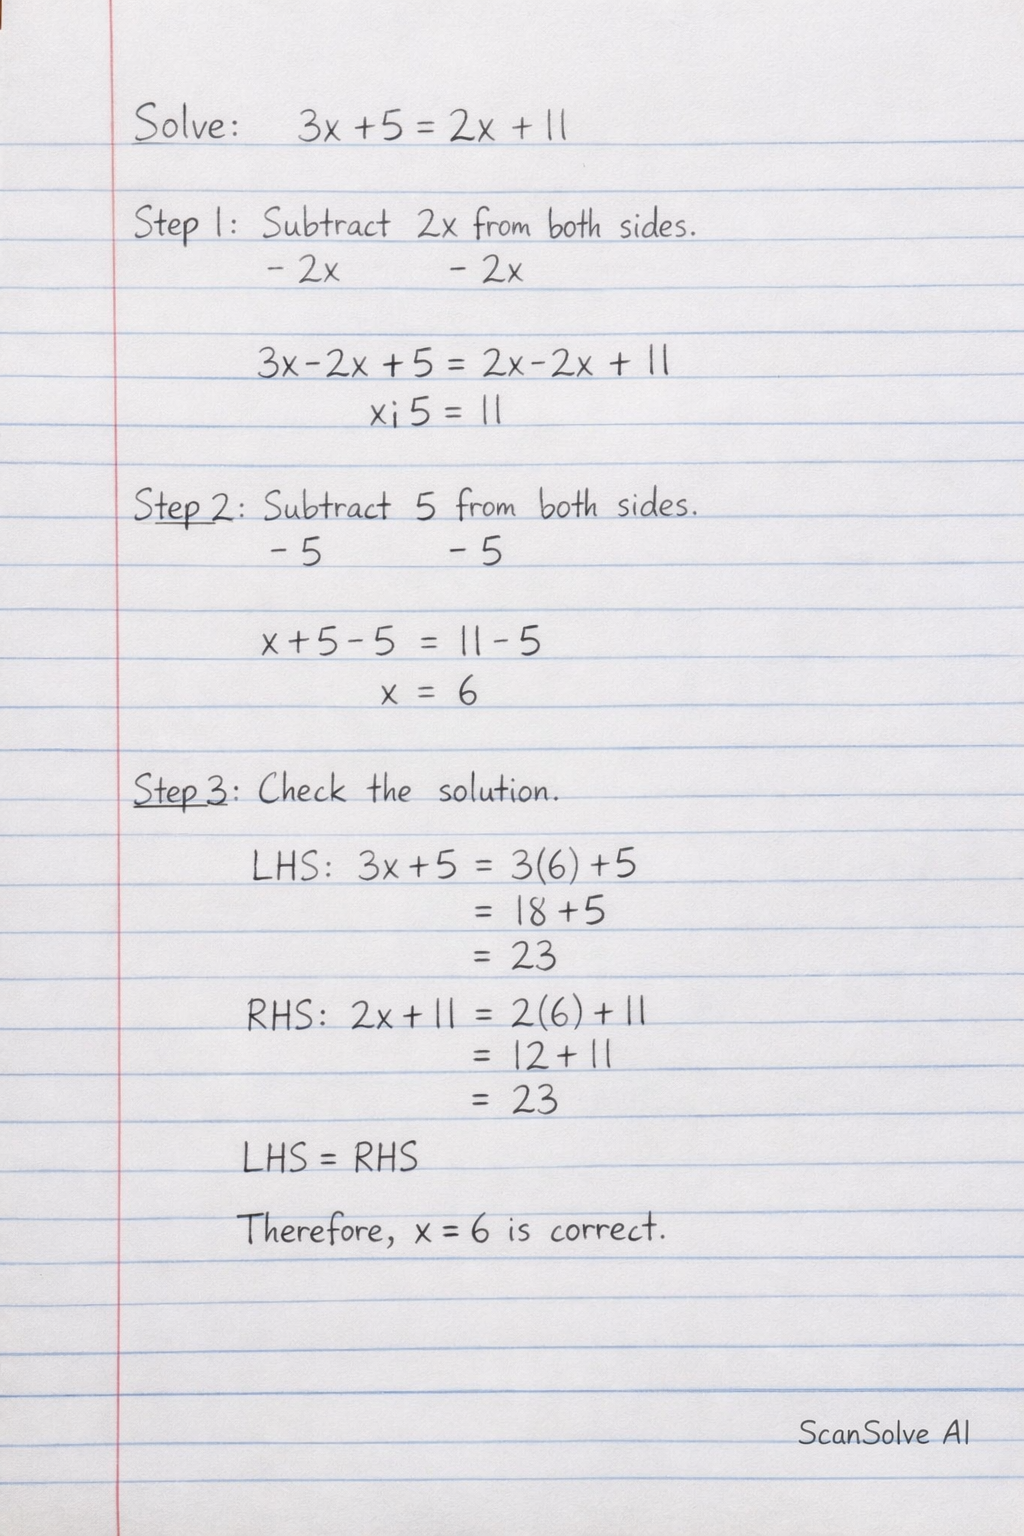 Solve: 3x + 5 = 2x + 11
Step 1: Subtract 2x from both sides.
- 2x - 2x
3x - 2x + 5 = 2x - 2x + 11
x¡ 5 = 11
Step 2: Subtract 5 from both sides.
- 5 - 5
x + 5 - 5 = 11 - 5
x = 6
Step 3: Check the solution.
LHS: 3x + 5 = 3(6) + 5
= 18 + 5
= 23
RHS: 2x + 11 = 2(6) + 11
= 12 + 11
= 23
LHS = RHS
Therefore, x = 6 is correct.
ScanSolve AI